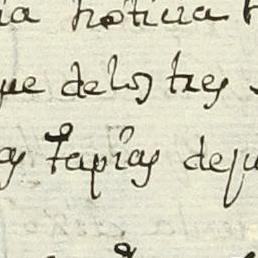 noticia
que de los tres
tapias de